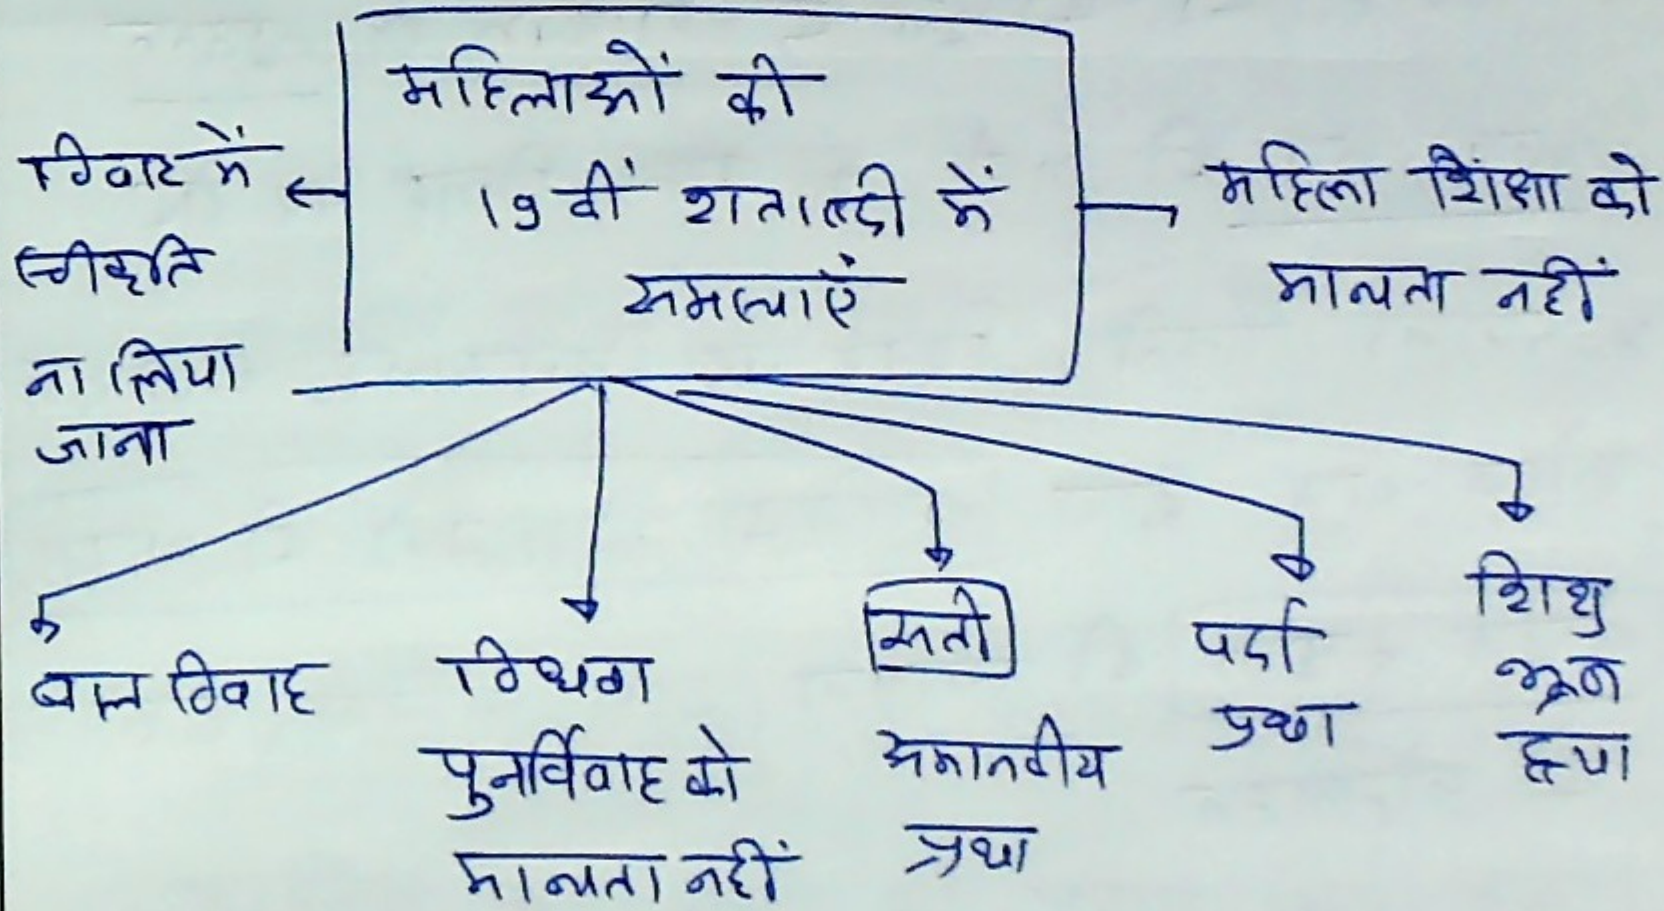 महिलाओं की
19वीं शताब्दी में
समस्याएं
विवाह में
स्वीकृति
ना लिया
जाना
महिला शिक्षा को
मान्यता नहीं
बाल विवाह
विधवा
पुनर्विवाह को
मान्यता नहीं
सती
अमानवीय
प्रथा
पर्दा
प्रथा
शिशु
भ्रूण
हत्या